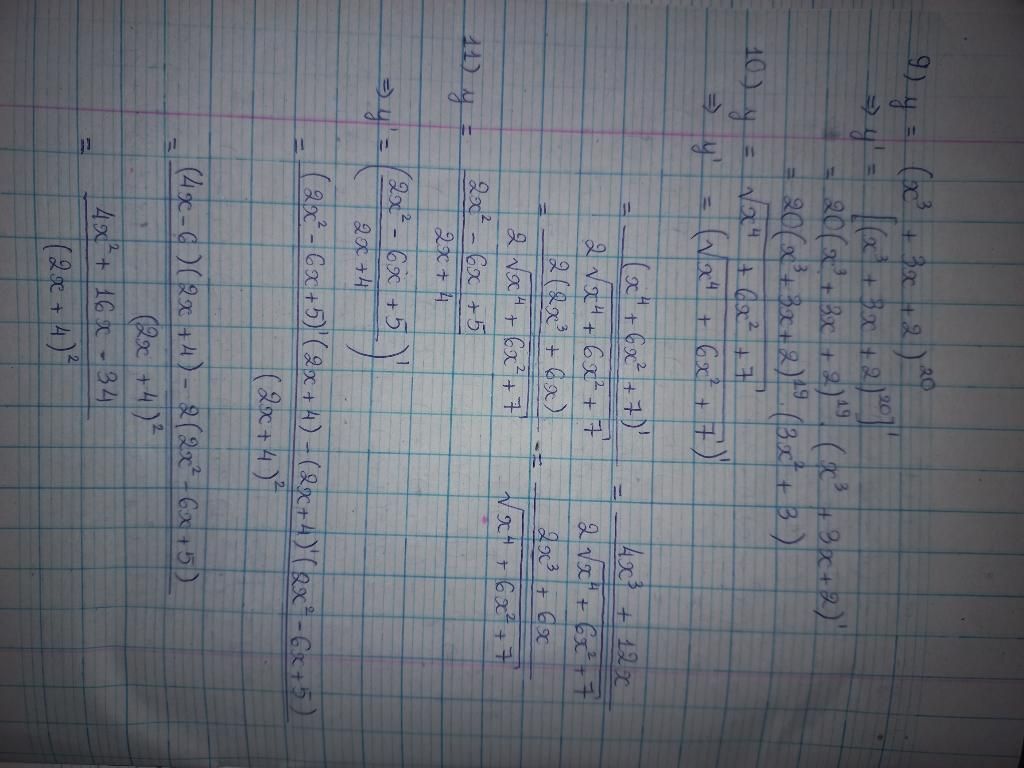 9) y = (x³ + 3x + 2)²⁰
⇒ y' = [(x³ + 3x + 2)²⁰]'
= 20(x³ + 3x + 2)¹⁹. (x³ + 3x + 2)'
= 20(x³ + 3x + 2)¹⁹. (3x² + 3)
10) y = √(x⁴ + 6x² + 7)
⇒ y' = (√(x⁴ + 6x² + 7))'
= (x⁴ + 6x² + 7)' / 2√(x⁴ + 6x² + 7) = 4x³ + 12x / 2√(x⁴ + 6x² + 7)
= 2(2x³ + 6x) / 2√(x⁴ + 6x² + 7) = 2x³ + 6x / √(x⁴ + 6x² + 7)
11) y = 2x² - 6x + 5 / 2x + 4
⇒ y' = (2x² - 6x + 5 / 2x + 4)'
= (2x² - 6x + 5)'(2x + 4) - (2x + 4)'(2x² - 6x + 5) / (2x + 4)²
= (4x - 6)(2x + 4) - 2(2x² - 6x + 5) / (2x + 4)²
= 4x² + 16x - 34 / (2x + 4)²